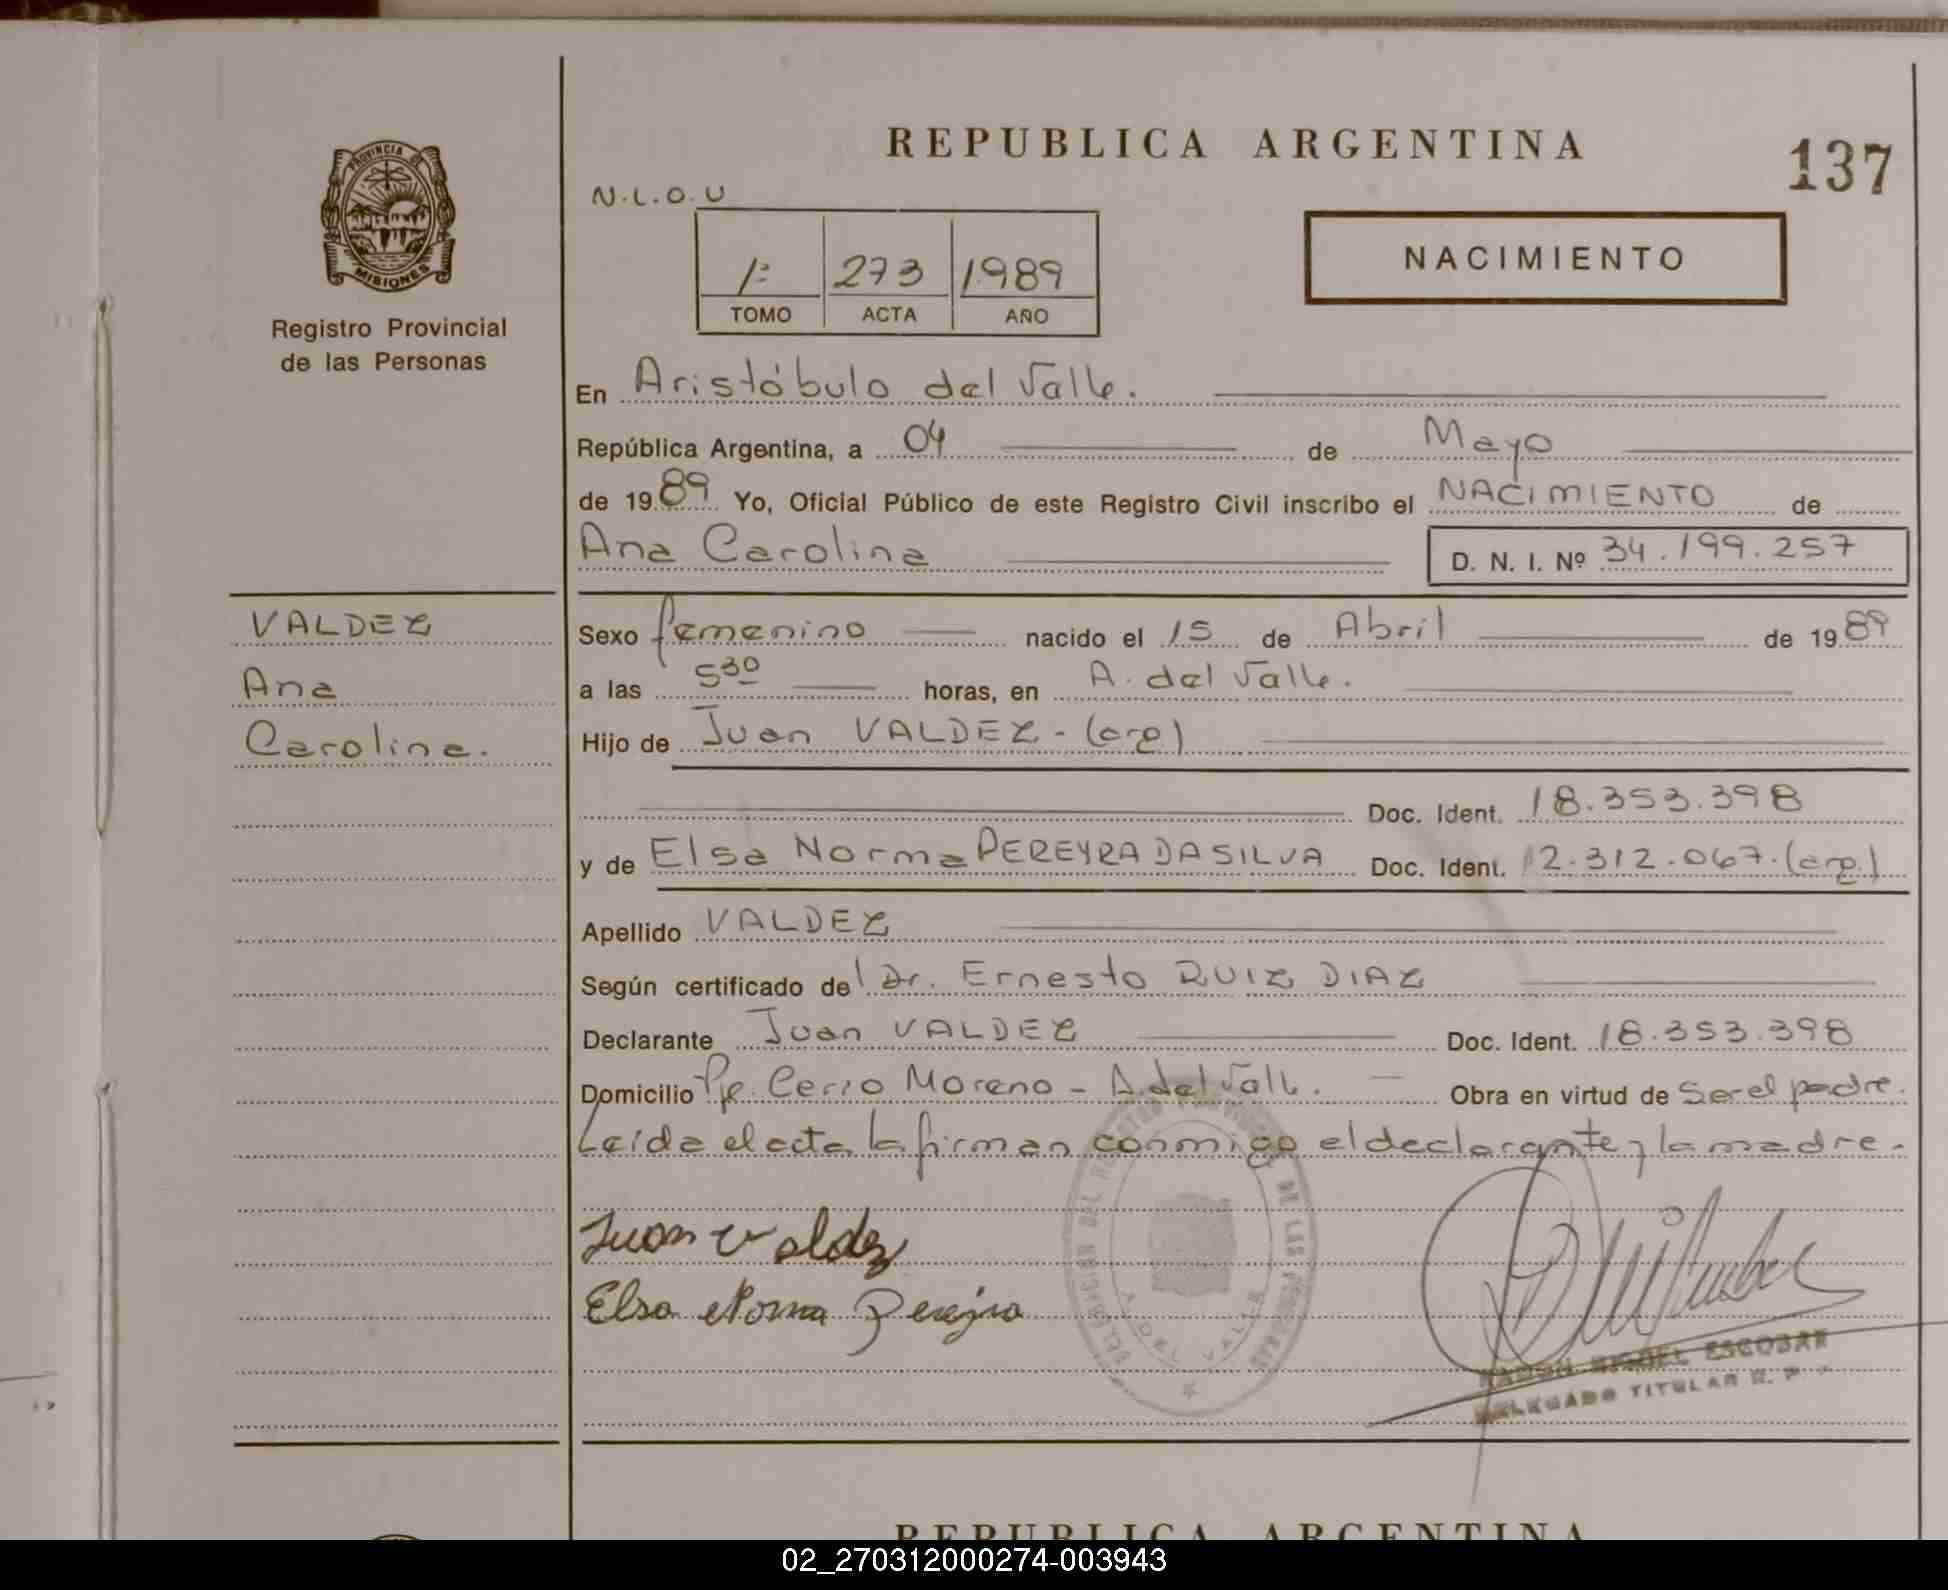 REPUBLICA ARGENTINA
137
PROVINCIA DE
MISIONES
Registro Provincial
de las Personas
N.L.O.U
1º 273 1989
TOMO ACTA AÑO
NACIMIENTO
En Aristóbulo del Valle.
República Argentina, a 04 de Mayo
de 1989 Yo, Oficial Público de este Registro Civil inscribo el NACIMIENTO de
Ana Carolina D. N. I. Nº 34.199.257
VALDEZ
Ana
Carolina.
Sexo femenino nacido el 15 de Abril de 1989
a las 5 30 horas, en A. del Valle.
Hijo de Juan VALDEZ - (arg)
Doc. Ident. 18.353.398
y de Elsa Norma PEREYRA DA SILVA Doc. Ident. 12.312.067.(arg.)
Apellido VALDEZ
Según certificado del Dr. Ernesto RUIZ DIAZ
Declarante Juan VALDEZ Doc. Ident. 18.353.398
Domicilio Pje. Cerro Moreno - A. del Valle. Obra en virtud de Ser el padre.
Leída el acta la firman conmigo el declarante y la madre.
Juan Valdez
Elsa Norma Pereyra
DELEGACION DEL REGISTRO PROVINCIAL DE LAS PERSONAS
A. DEL VALLE
RAMON MIGUEL ESCOBAR
DELEGADO TITULAR R. P.
REPUBLICA ARGENTINA
02_270312000274-003943